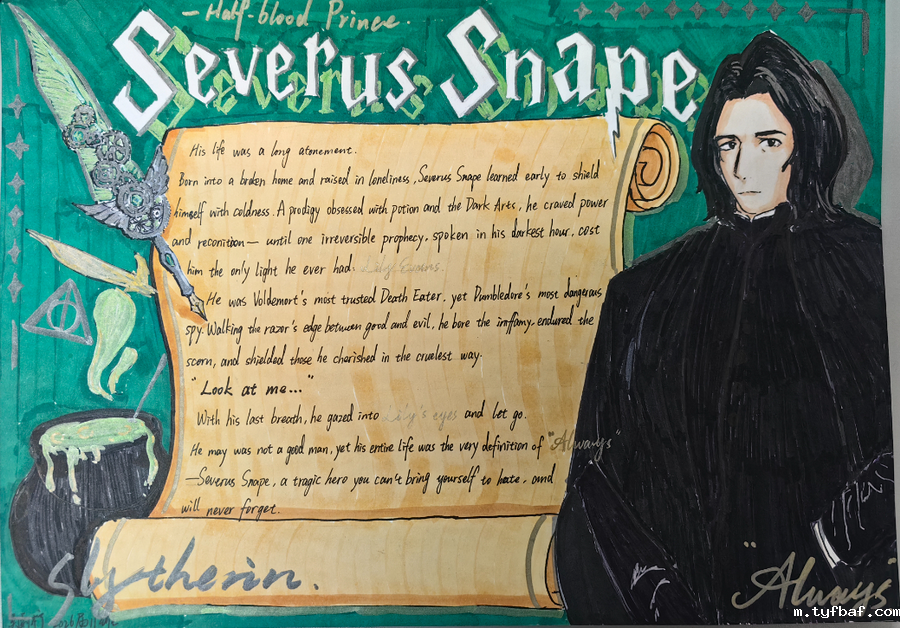 — Half-blood Prince.
Severus Snape
His life was a long atonement.
Born into a broken home and raised in loneliness, Severus Snape learned early to shield
himself with coldness. A prodigy obsessed with potion and the Dark Arts, he craved power
and reconition— until one irreversible prophecy, spoken in his darkest hour, cost
him the only light he ever had: Lily Evans.
He was Voldemort's most trusted Death Eater, yet Dumbledore's most dangerous
spy. Walking the razor's edge between good and evil, he bore the inffamy, endured the
scorn, and shielded those he cherished in the cruelest way.
"Look at me..."
With his last breath, he gazed into Lily's eyes and let go.
He may was not a good man, yet his entire life was the very definition of "Always"
—Severus Snape, a tragic hero you can't bring yourself to hate, and
will never forget.
Slytherin.
"Always"
m.tyfbaf.com